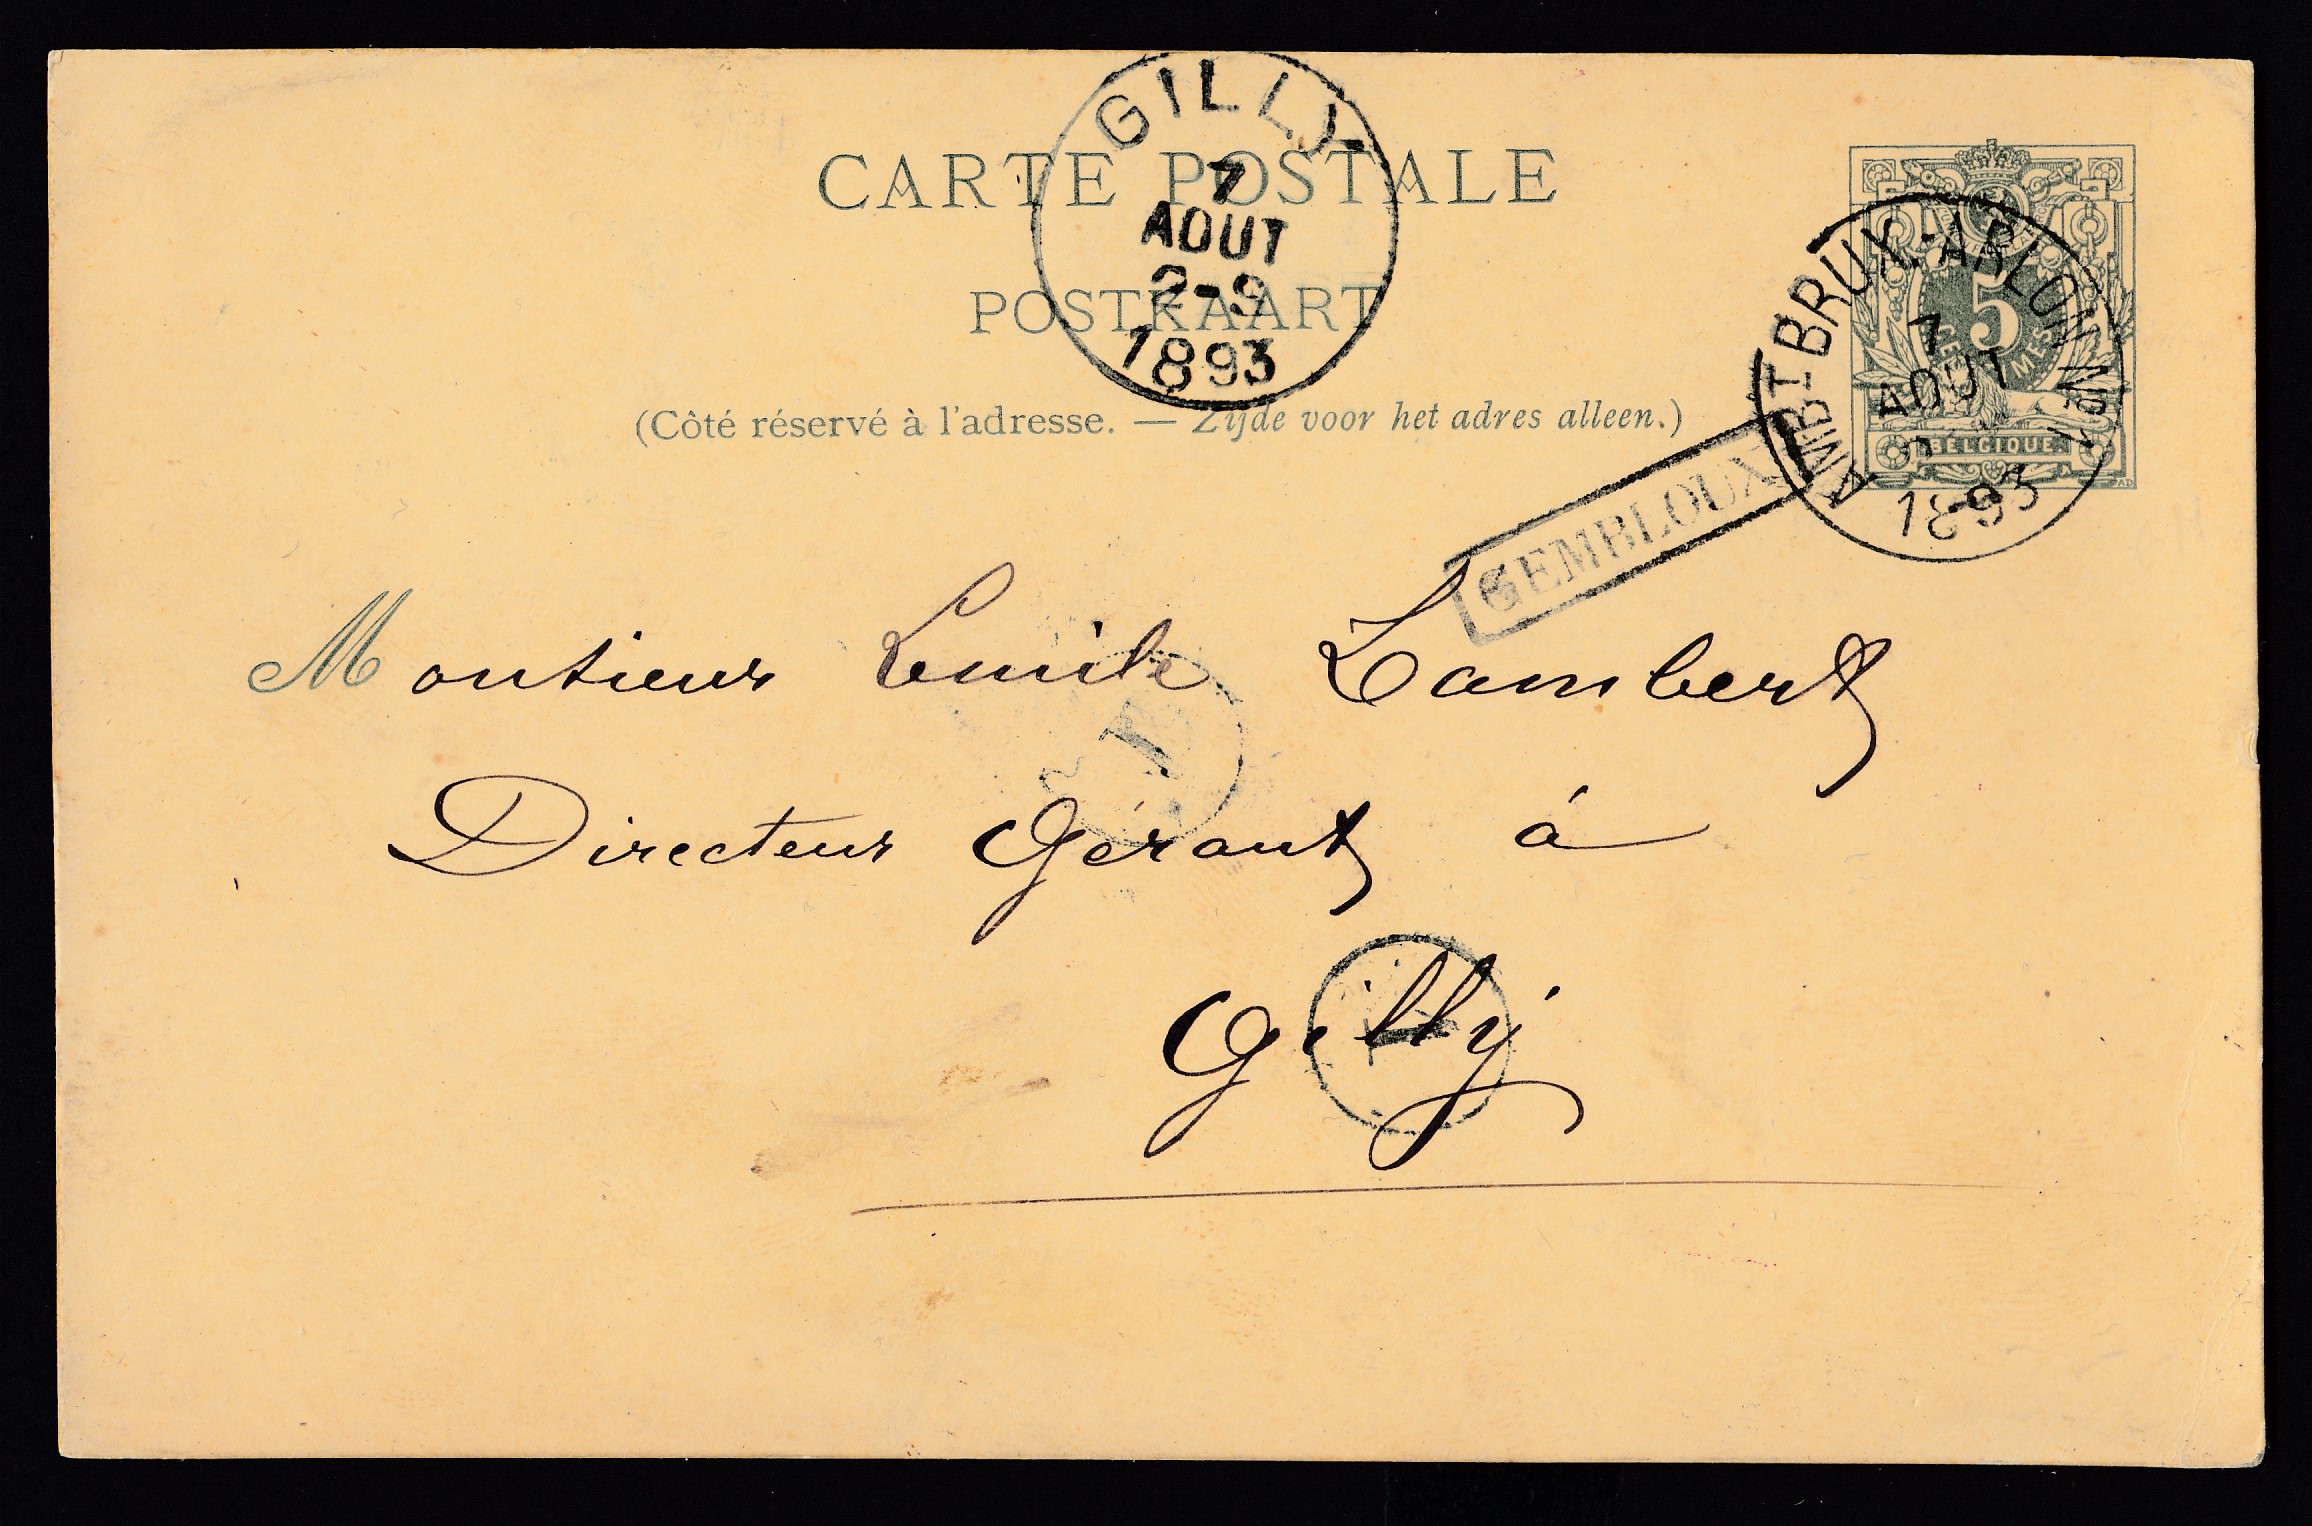 GILLY
7
AOUT
2-9
1893
CARTE POSTALE
POSTKAART
(Côté réservé à l'adresse. — Zijde voor het adres alleen.)
5
CENTIMES
BELGIQUE
AMBT BRUX.-ARLON No 1
7
AOUT
1893
GEMBLOUX
Monsieur Emile Lambert
Directeur Gérant à
Gilly
1